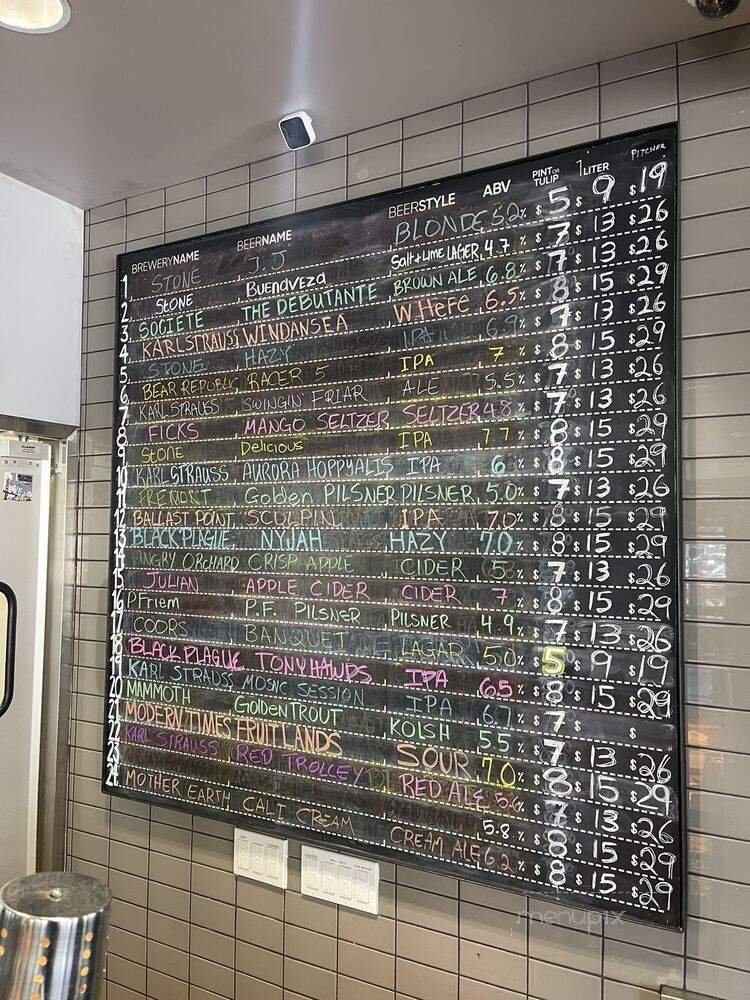 BREWERYNAME BEERNAME BEERSTYLE ABV PINT OR TULIP 1 LITER PITCHER
1 STONE J.J BLONDE 5.2% $5 $9 $19
2 STONE BUENAVEZA Salt + Lime LAGER 4.7% $7 $13 $26
3 SOCIETE THE DEBUTANTE BROWN ALE 6.8% $7 $13 $26
4 KARL STRAUSS WINDANSEA W.HeFe 6.5% $8 $15 $29
5 STONE HAZY IPA 6.9% $7 $13 $26
6 BEAR REPUBLIC RACER 5 IPA 7% $8 $15 $29
7 KARL STRAUSS SWINGIN' FRIAR ALE 5.5% $7 $13 $26
8 FICKS MANGO SELTZER SELTZER 4.8% $7 $13 $26
9 Stone Delicious IPA 7.7% $8 $15 $29
10 KARL STRAUSS AURORA HOPPYALIS IPA 6% $8 $15 $29
11 FREMONT Golden PILSNER PILSNER 5.0% $7 $13 $26
12 BALLAST POINT SCULPIN IPA 7.0% $8 $15 $29
13 BLACK PLAGUE NYJAH HAZY 7.0% $8 $15 $29
14 ANGRY ORCHARD CRISP APPLE CIDER 5% $7 $13 $26
15 JULIAN APPLE CIDER CIDER 7% $8 $15 $29
16 PFriem P.F. PILSNER PILSNER 4.9% $7 $13 $26
17 COORS BANQUET LAGAR 5.0% $5 $9 $19
18 BLACK PLAGUE TONYHAWDS IPA 6.5% $8 $15 $29
19 KARL STRAUSS MOSIC SESSION IPA $7 $ $
20 MAMMOTH Golden TROUT KOLSH 5.5% $7 $13 $26
21 MODERN TIMES FRUITLANDS SOUR 7.0% $8 $15 $29
22 KARL STRAUSS RED TROLLEY RED ALE 5.6% $7 $13 $26
23 5.8% $8 $15 $29
24 MOTHER EARTH CALI CREAM CREAM ALE 6.2% $8 $15 $29
menupix